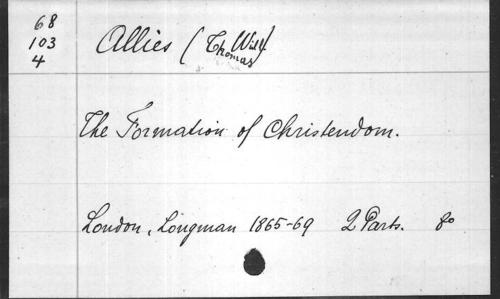 68
103
4
Allies (Thomas Will)
The Formation of Christendom.
London, Longman 1865-69 2 Parts. 8o